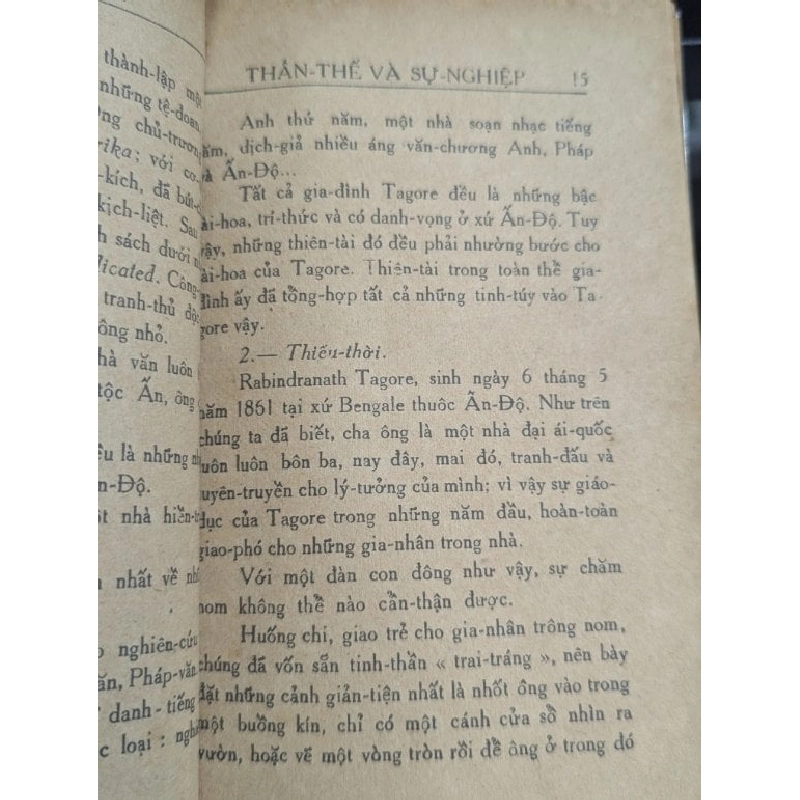 thành-lập một
những tệ-đoan,
ông chủ-trương
rika; với cơ
-kích, đã bút-
kịch-liệt. Sau
h sách dưới
dicated. Công-
tranh-thủ độc
ông nhỏ.
hà văn luôn
tộc Ấn, ông
ều là những
n-Độ.
t nhà hiền-
n nhất về
nghiên-cứu
ăn, Pháp-văn
danh-tiếng
c loại : ngh
THÂN-THẾ VÀ SỰ-NGHIỆP 15
Anh thứ năm, một nhà soạn nhạc tiếng
ăm, dịch-giả nhiều áng văn-chương Anh, Pháp
à Ấn-Độ...
Tất cả gia-đình Tagore đều là những bậc
ài-hoa, trí-thức và có danh-vọng ở xứ Ấn-Độ. Tuy
vậy, những thiên-tài đó đều phải nhường bước cho
ài-hoa của Tagore. Thiên-tài trong toàn thể gia-
đình ấy đã tổng-hợp tất cả những tinh-túy vào Ta-
gore vậy.
2.— Thiếu-thời.
Rabindranath Tagore, sinh ngày 6 tháng 5
năm 1861 tại xứ Bengale thuôc Ấn-Độ. Như trên
chúng ta đã biết, cha ông là một nhà đại ái-quốc
luôn luôn bôn ba, nay đây, mai đó, tranh-đấu và
uyên-truyền cho lý-tưởng của mình; vì vậy sự giáo-
dục của Tagore trong những năm đầu, hoàn-toàn
giao-phó cho những gia-nhân trong nhà.
Với một đàn con đông như vậy, sự chăm
nom không thể nào cẩn-thận được.
Huống chi, giao trẻ cho gia-nhân trông nom,
chúng đã vốn sẵn tinh-thần « trai-tráng », nên bày
đặt những cảnh giản-tiện nhất là nhốt ông vào trong
một buồng kín, chỉ có một cánh cửa sổ nhìn ra
vườn, hoặc vẽ một vòng tròn rồi để ông ở trong đó